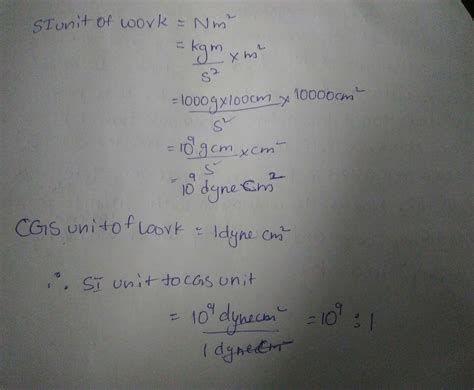 SI unit of work = Nm²
= kgm/s² × m²
= 1000g×100cm/s² × 10000cm²
= 10⁹ gcm/s² × cm²
= 10⁹ dyne cm²
CGS unit of work = 1dyne cm²
∴ SI unit to CGS unit
= 10⁹ dynecm²/1 dynecm² = 10⁹ : 1